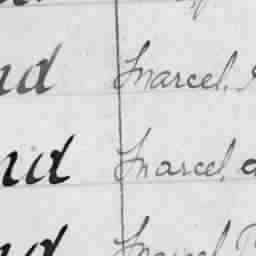 nd Marcel,
nd Marcel,
nd Marcel